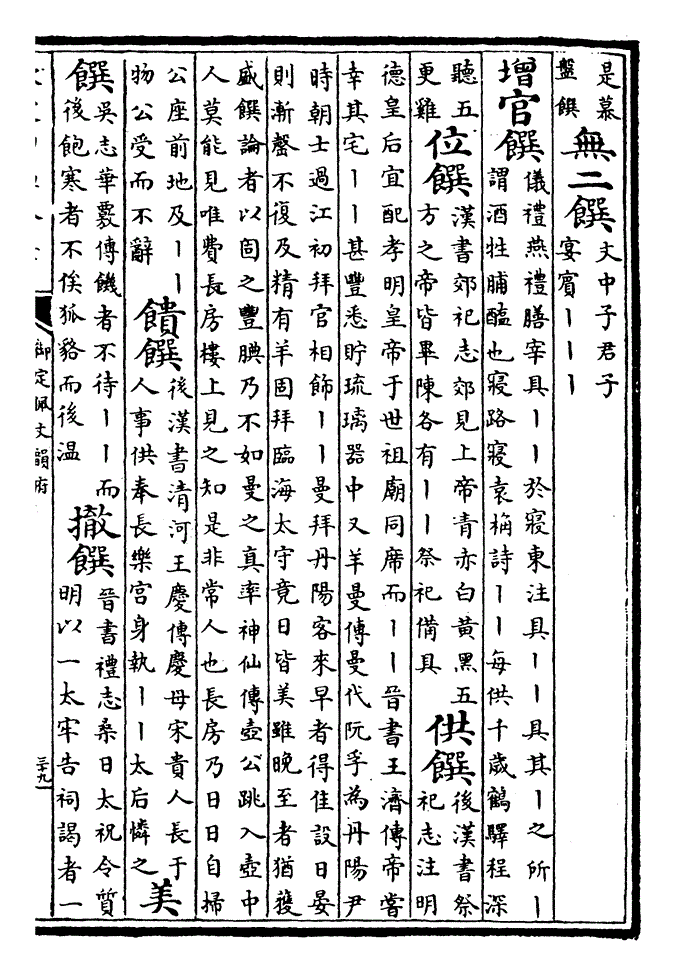 是慕
盤饌
無二饌
文中子君子
宴賓丨丨丨
增官饌
儀禮燕禮膳宰具丨丨於寢東注具丨丨具其丨之所丨
謂酒牲脯醢也寢路寢袁桷詩丨丨每供千歲鶴驛程深
聽五
更雞
位饌
漢書郊祀志郊見上帝青赤白黃黑五
方之帝皆畢陳各有丨丨祭祀備具
供饌
後漢書祭
祀志注明
德皇后宜配孝明皇帝于世祖廟同席而丨丨晉書王濟傳帝嘗
幸其宅丨丨甚豐悉貯琉璃器中又羊曼傳曼代阮孚為丹陽尹
時朝士過江初拜官相飾丨丨曼拜丹陽客來早者得佳設日晏
則漸罄不復及精有羊固拜臨海太守竟日皆美雖晚至者猶獲
盛饌論者以固之豐腆乃不如曼之真率神仙傳壺公跳入壺中
人莫能見唯費長房樓上見之知是非常人也長房乃日日自掃
公座前地及丨丨
物公受而不辭
饋饌
後漢書清河王慶傳慶母宋貴人長于
人事供奉長樂宮身執丨丨太后憐之
美
饌
吳志華覈傳饑者不待丨丨而
後飽寒者不俟狐貉而後温
撤饌
晉書禮志桑日太祝令質
明以一太牢告祠謁者一
御定佩文韻府